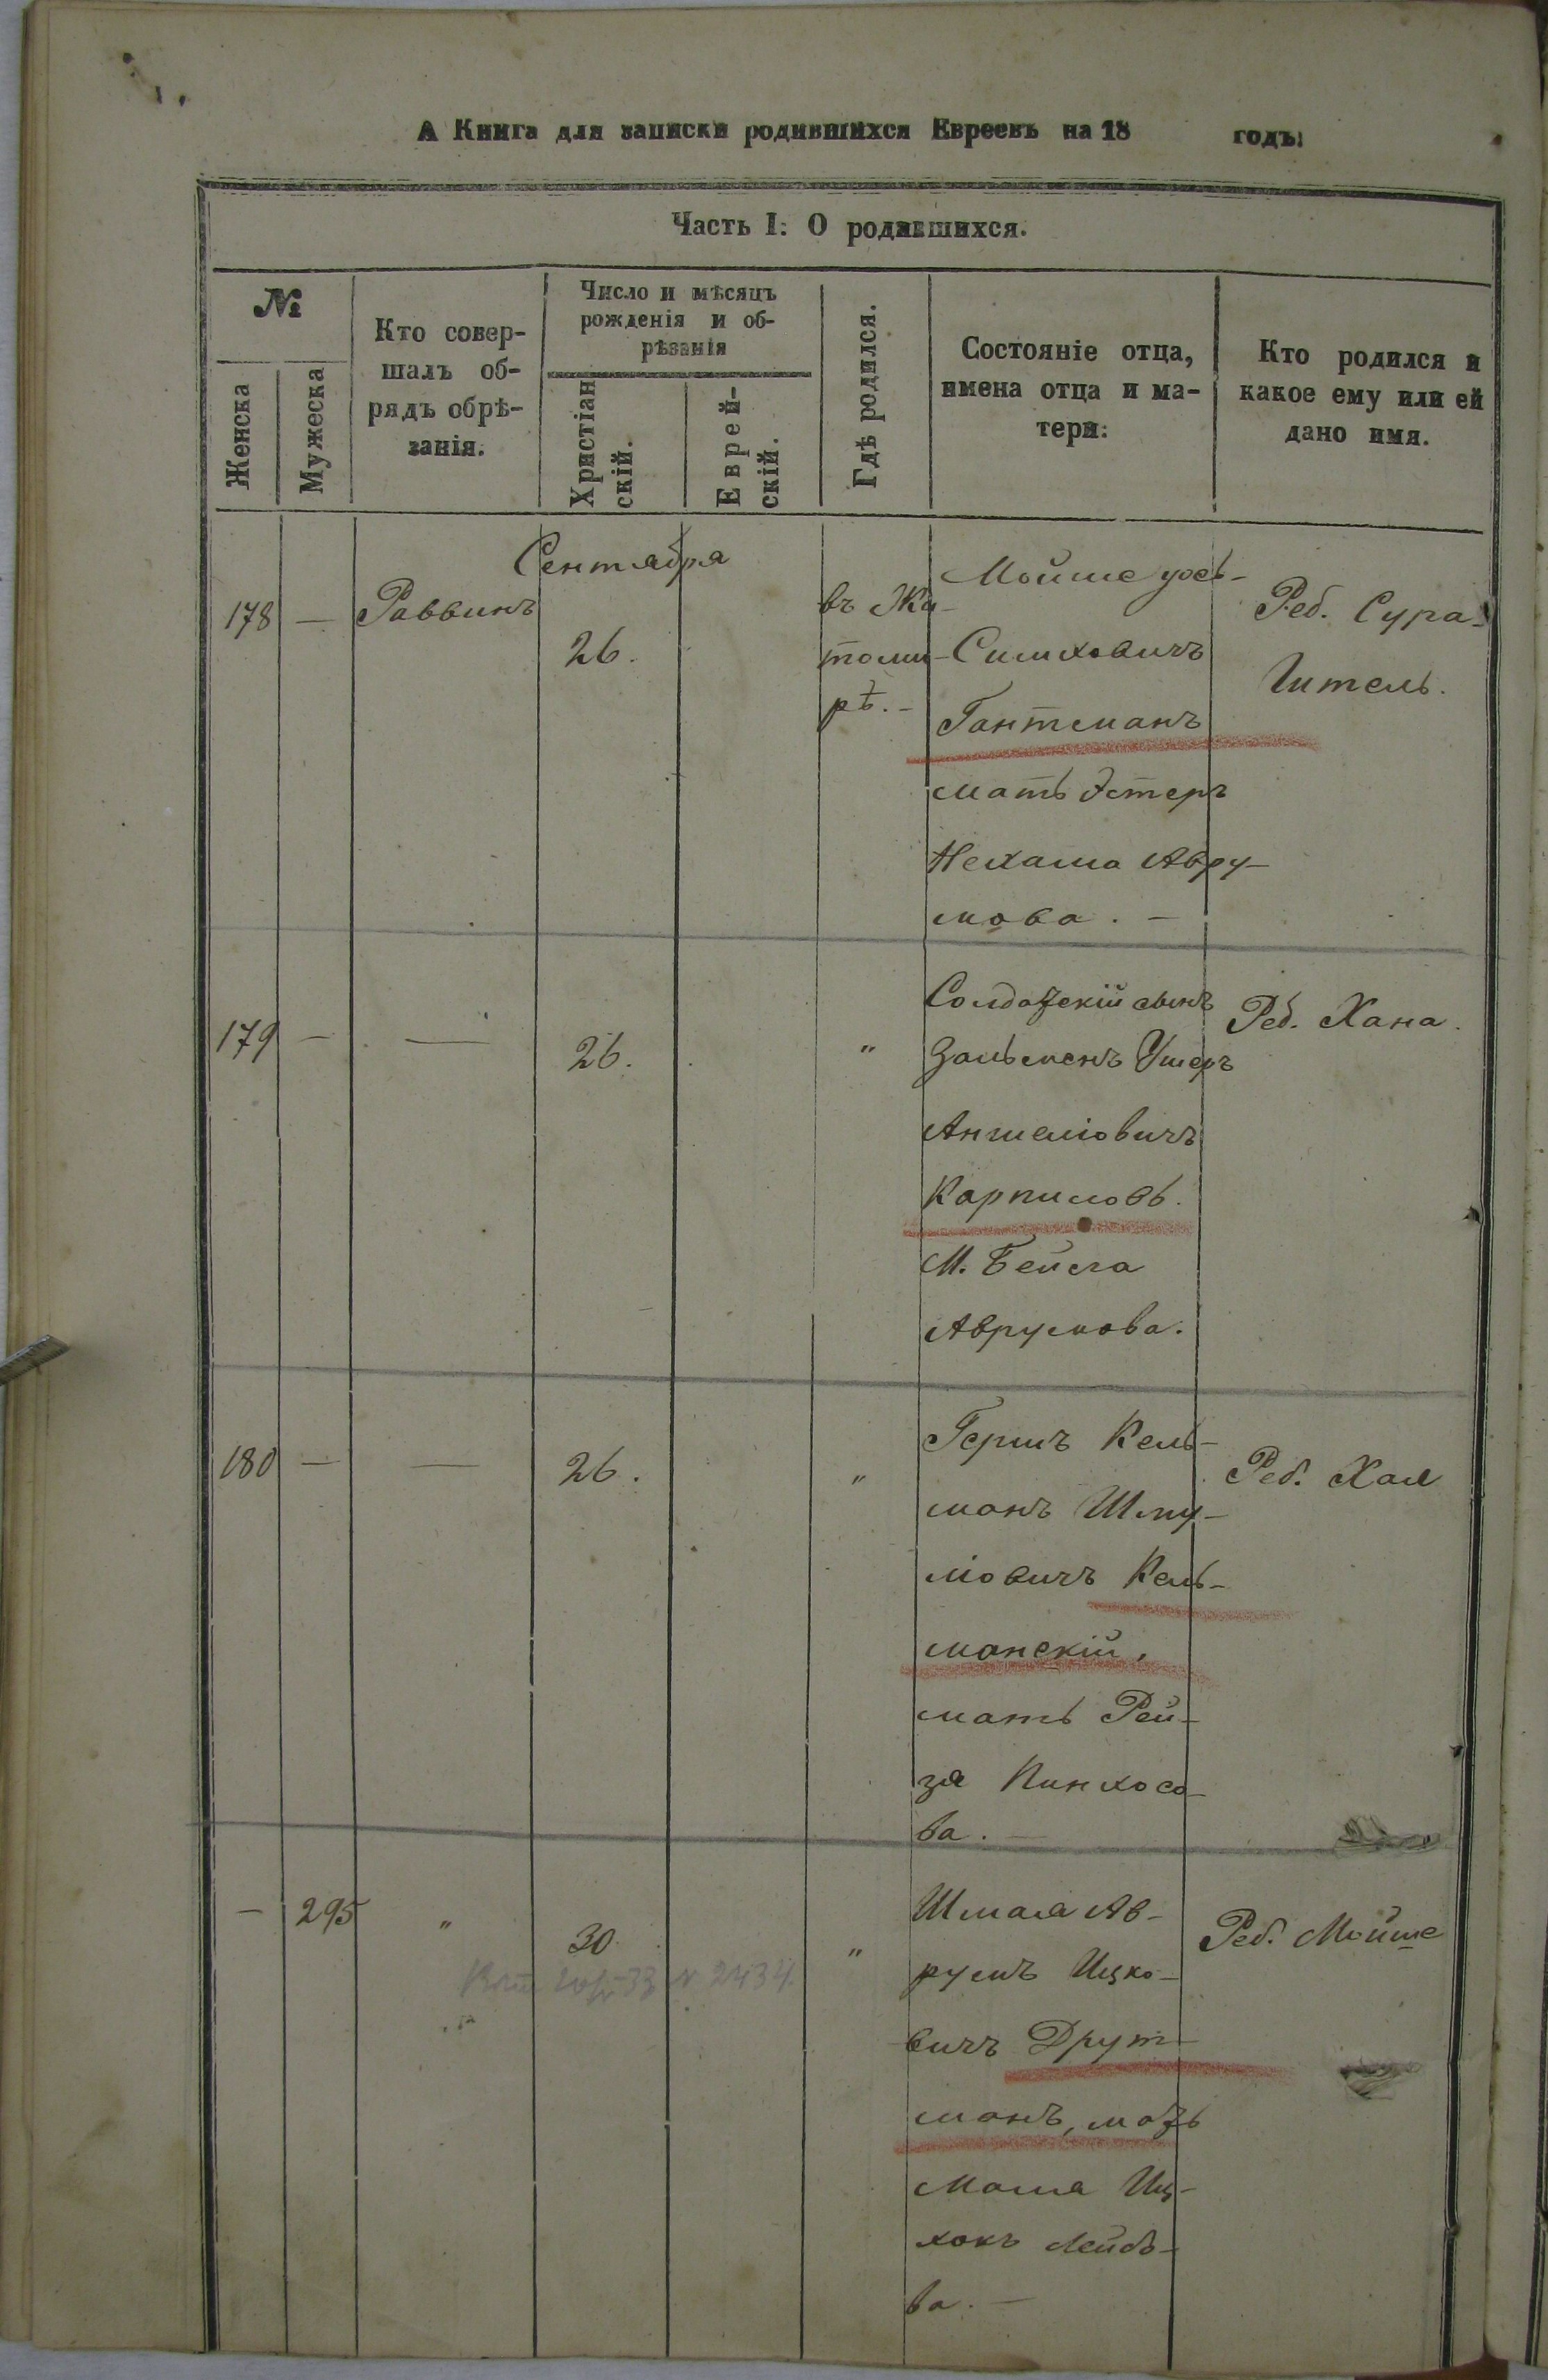 А Книга для записки родившихся Евреевъ на 18 годъ:
Часть I: О родившихся.
№
Женска
Мужеска
Кто совер-
шалъ об-
рядъ обрѣ-
занія.
Число и мѣсяцъ
рожденія и об-
рѣзанія
Христіан
скій.
Еврей-
скій.
Гдѣ родился.
Состояніе отца,
имена отца и ма-
тери:
Кто родился и
какое ему или ей
дано имя.
Сентября
178 — Раввинъ
26.
въ Жи-
томи-
рѣ. -
Мойше
Симховичъ
Гантманъ
мать Эстеръ
Нехама Авру-
мова. —
Реб. Сура-
Гитель.
179 — — 26. "
Солдатскій сынъ
Зальменъ Ушеръ
Аншеліовичъ
Карпиловъ.
М. Бейла
Аврумова.
Реб. Хана.
180 — — 26. "
Гершъ Кель-
манъ Шму-
ліовичъ Кель-
манскій,
мать Рей-
зя Пинхосо-
ва. —
Реб. Хая
— 295 " 30. "
№ 2434.
Шмая Ав-
румъ Ицко-
вичъ Друт-
манъ, мать
Маша Иц-
хокъ Лейбо-
ва. —
Реб. Мойше